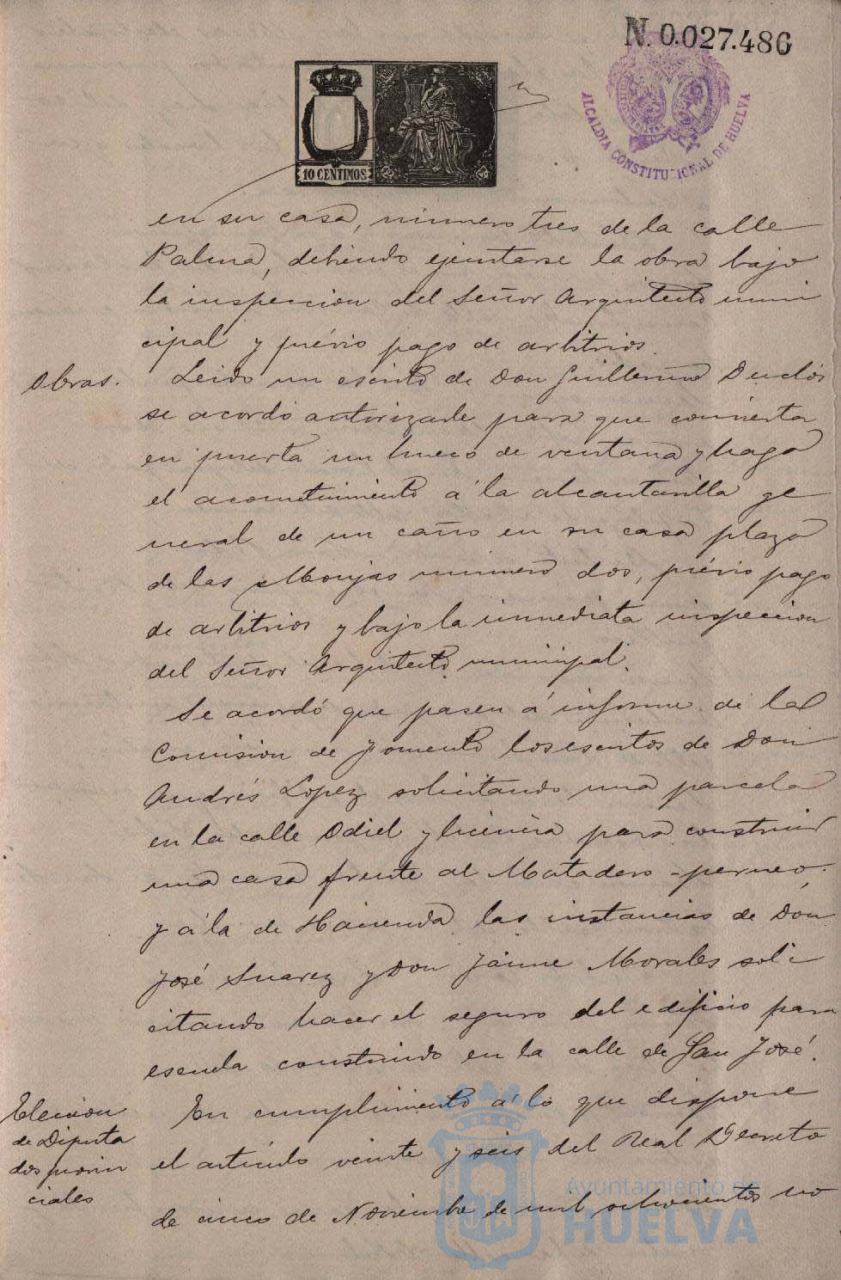 N. 0.027.486
10 CENTIMOS
ALCALDIA CONSTITUCIONAL DE HUELVA
en su casa, número tres de la calle
Palma, debiendo ejecutarse la obra bajo
la inspeccion del Señor Arquitecto muni
cipal y prévio pago de arbitrios.
Obras.
Leido un escrito de Don Guillermo Duclós
se acordó autorizarle para que convierta
en puerta un hueco de ventana y haga
el acometimiento á la alcantarilla ge
neral de un caño en su casa plaza
de las Monjas número dos, prévio pago
de arbitrios y bajo la inmediata inspeccion
del Señor Arquitecto municipal.
Se acordó que pasen á informe de la
Comision de Fomento los escritos de Don
Andrés Lopez solicitando una parcela
en la calle Odiel y licencia para construir
una casa frente al Matadero
y á la de Hacienda las instancias de Don
José Suarez y Don Jaime Morales soli
citando hacer el seguro del edificio para
escuela construido en la calle de San José.
Eleccion
de Diputa
dos provin
ciales
En cumplimiento á lo que dispone
el artículo veinte y seis del Real Decreto
de cinco de Noviembre de mil ochocientos no
Ayuntamiento de
HUELVA